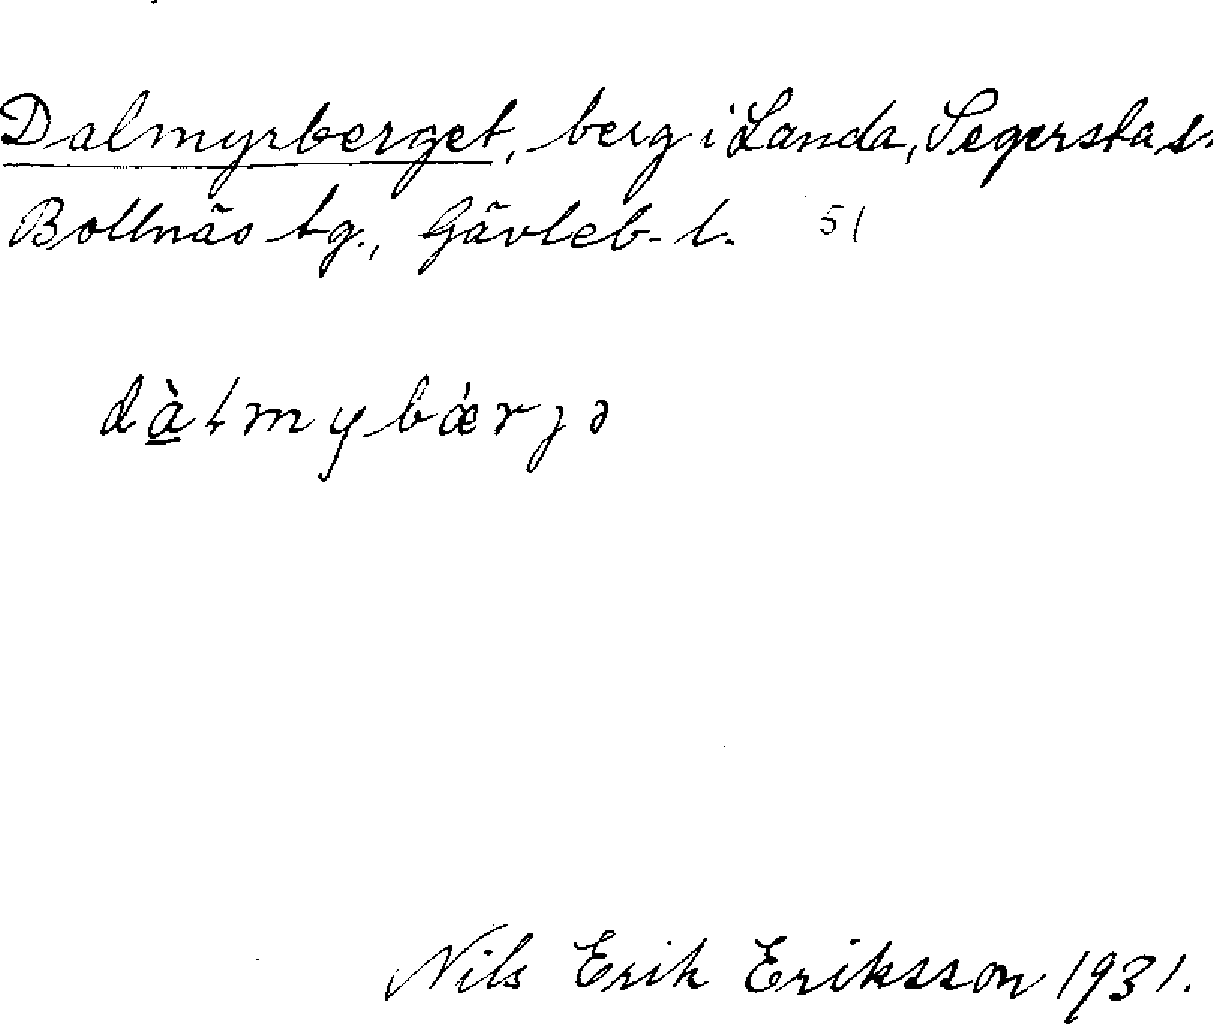 Dalmyrberget, berg i Landa, Segersta sn
Bollnäs tg., Gävleb. l. 51
dàɫmybǽrjə
Nils Erik Eriksson 1931.